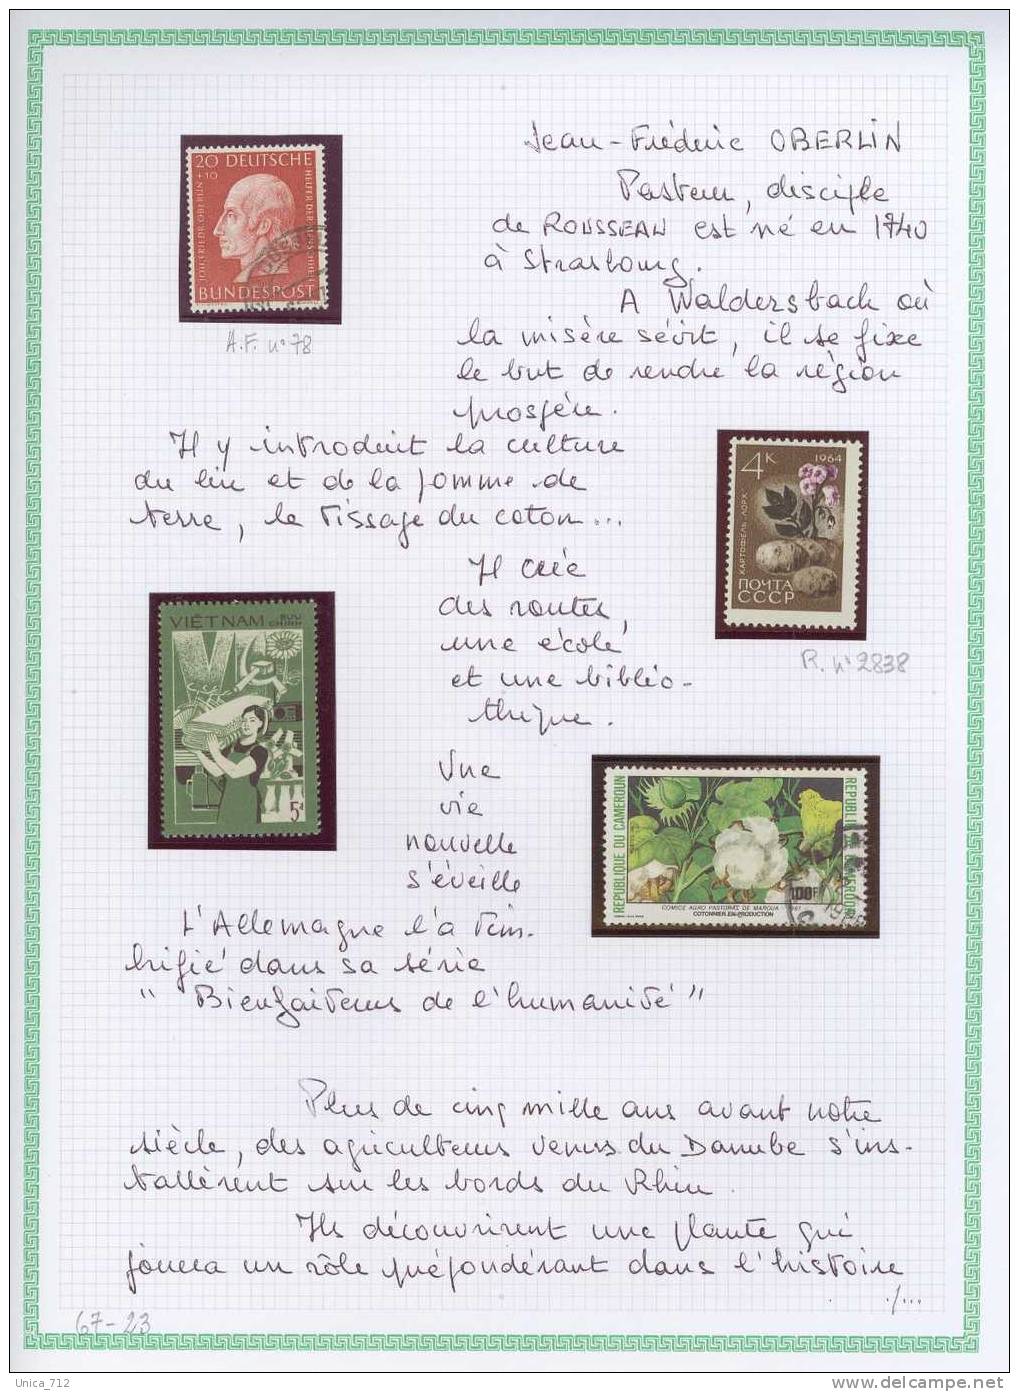 Jean-Fréderic OBERLIN
Pasteur, disciple
de ROUSSEAU est né en 1740
à Strasbourg.
A Waldersbach où
la misère sévit, il se fixe
le but de rendre la région
prospère.
20 DEUTSCHE
+10
JOH. FRIEDR. OBERLIN
HELFER DER MENSCHHEIT
BUNDESPOST
A.F. n° 78
Il y introduit la culture
du lin et de la pomme de
terre, le tissage du coton...
4 К 1964
КАРТОФЕЛЬ ЛОРХ
ПОЧТА
СССР
R. n° 2838
Il crée
des routes,
une école
et une biblio-
thèque.
VIÊTNAM BUU
CHINH
5đ
Une
vie
nouvelle
s'éveille
REPUBLIQUE DU CAMEROUN
REPUBLIC OF CAMEROON
100F
COMICE AGRO PASTORAL DE MAROUA
COTONNIER EN PRODUCTION
L'Allemagne l'a tim-
brifié dans sa série
" Bienfaiteurs de l'humanité "
Plus de cinq mille ans avant notre
siècle, des agriculteurs venus du Danube s'ins-
tallèrent sur les bords du Rhin.
Ils découvrirent une plante qui
jouera un rôle prépondérant dans l'histoire
./...
67-23
Unica_712
www.delcampe.net